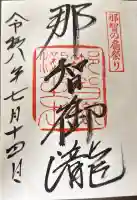 那智の扇祭り
那智御瀧
令和八年七月十四日